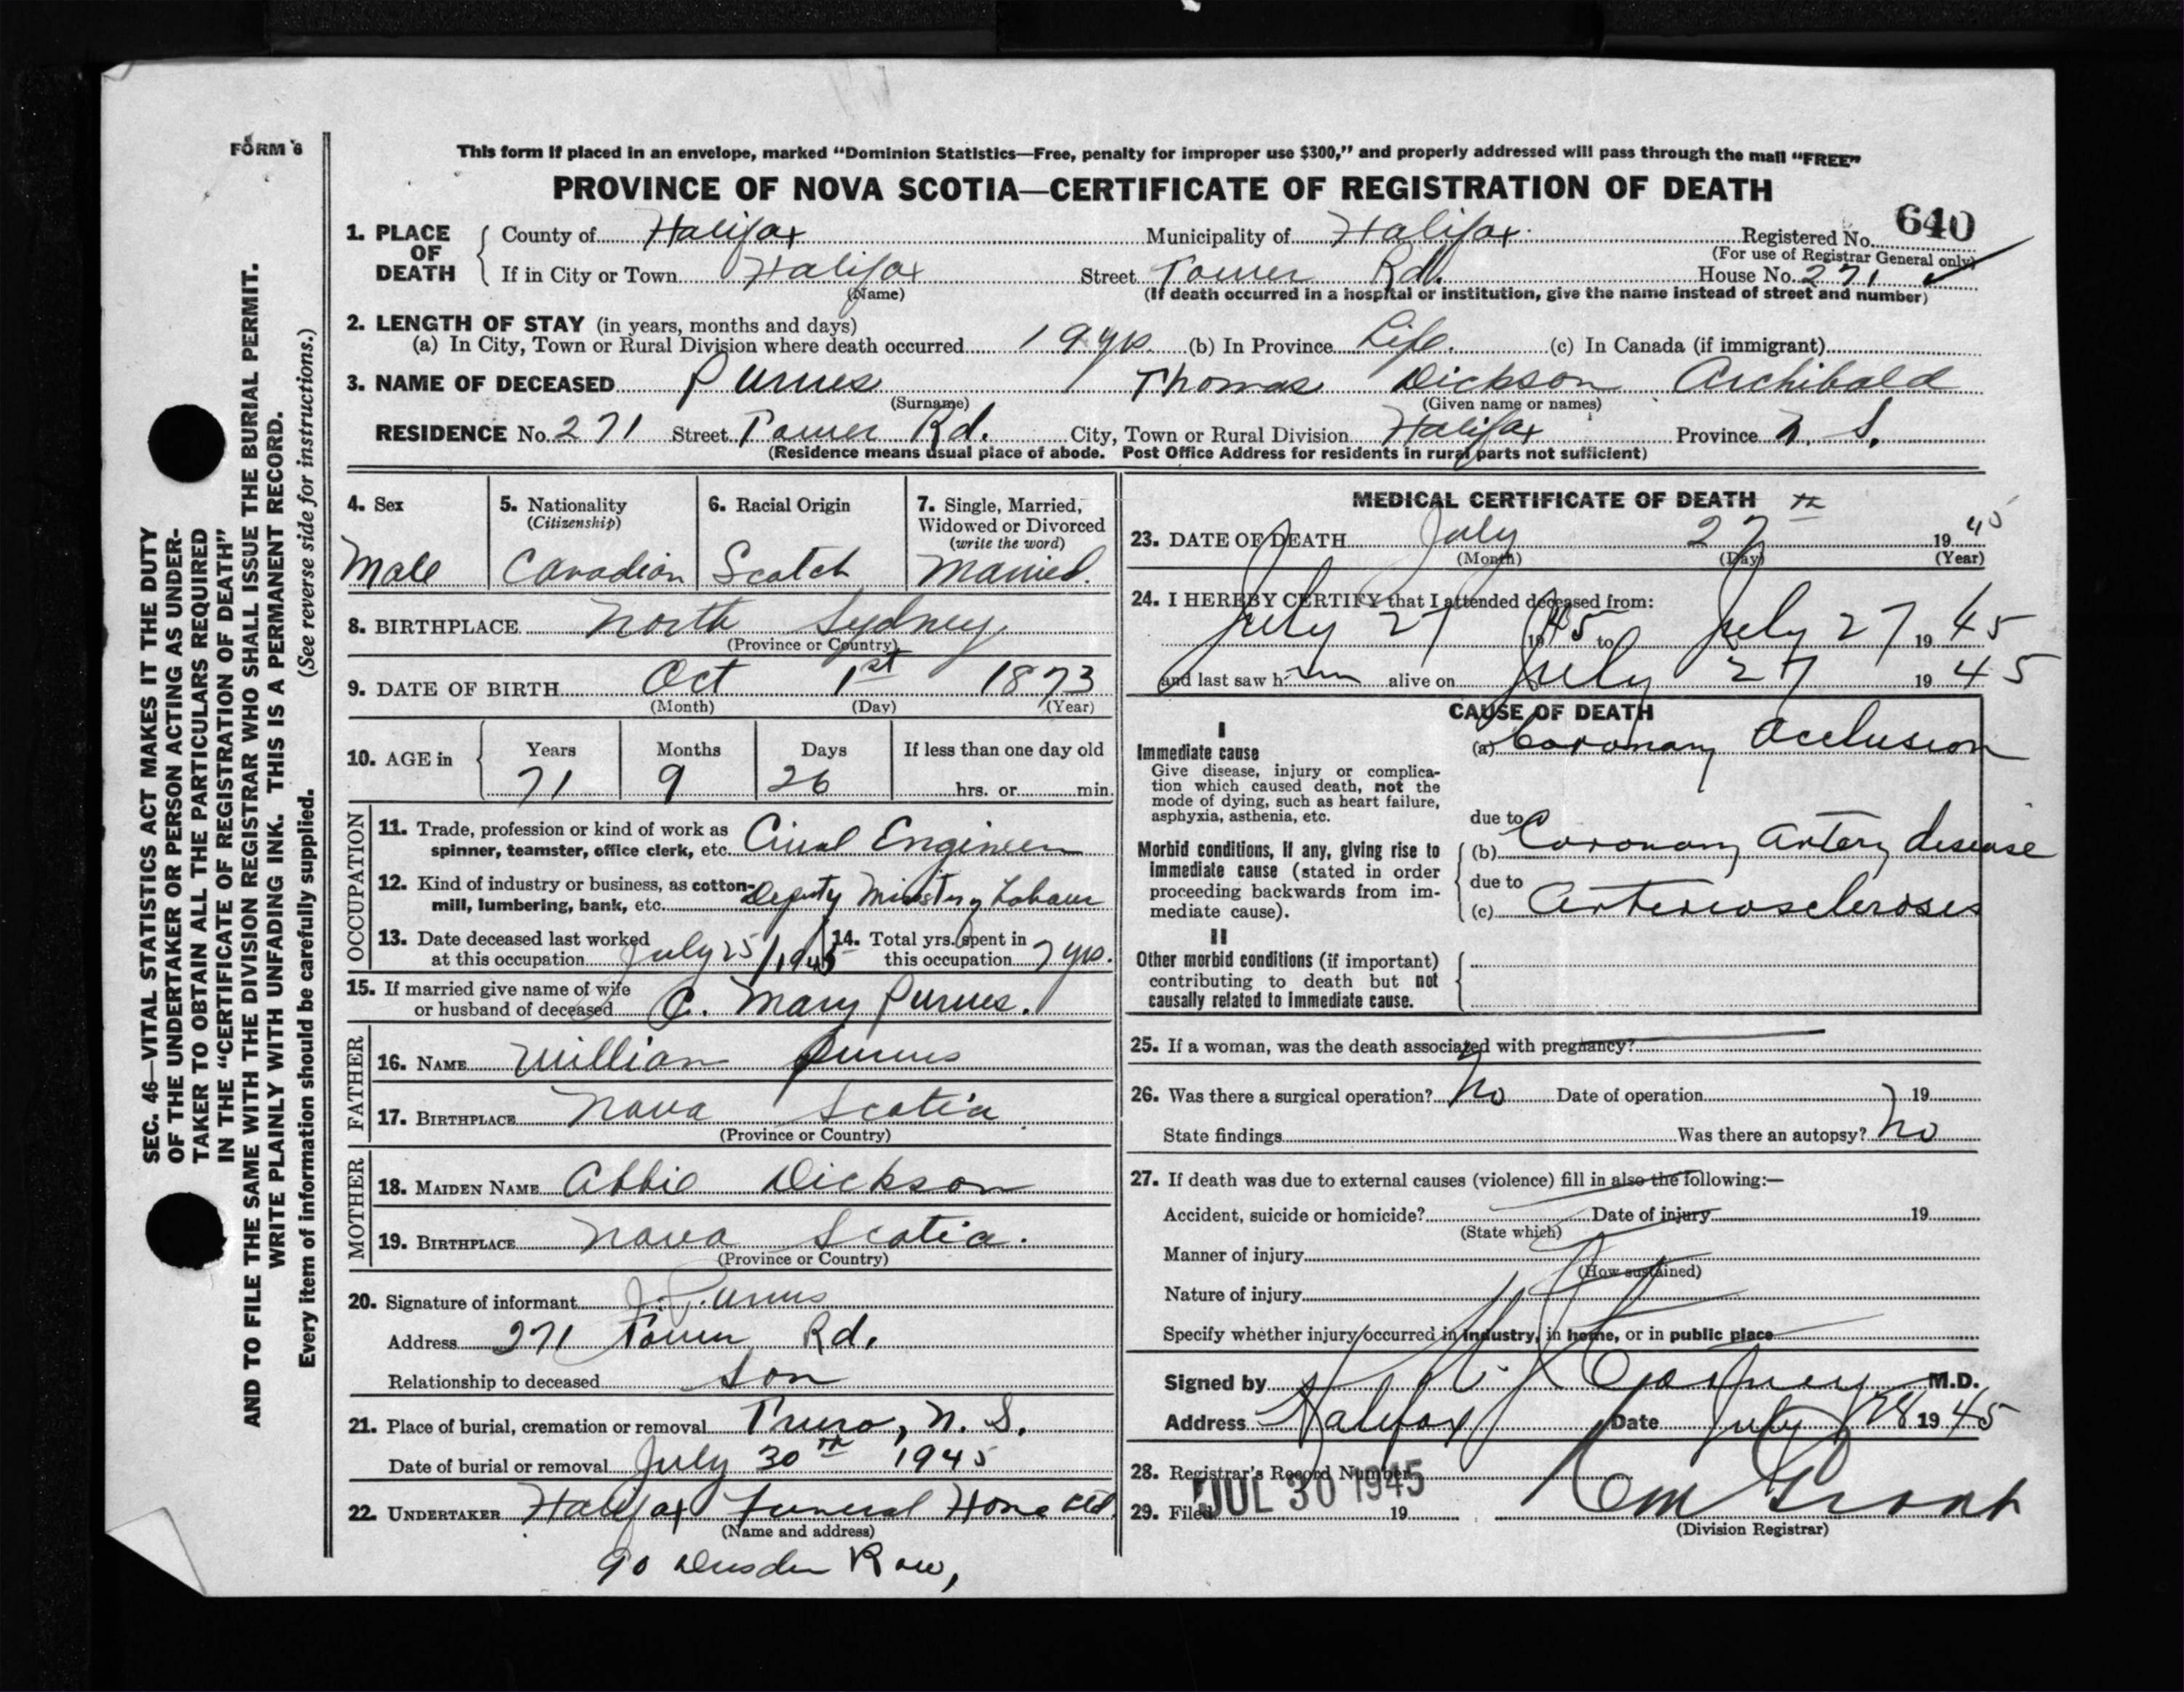 FORM 6
This form if placed in an envelope, marked “Dominion Statistics—Free, penalty for improper use $300,” and properly addressed will pass through the mail “FREE”
PROVINCE OF NOVA SCOTIA—CERTIFICATE OF REGISTRATION OF DEATH
640
1. PLACE OF DEATH County of Halifax Municipality of Halifax Registered No.
(For use of Registrar General only)
If in City or Town Halifax Street Tower Rd. House No. 271
(Name) (If death occurred in a hospital or institution, give the name instead of street and number)
2. LENGTH OF STAY (in years, months and days)
(a) In City, Town or Rural Division where death occurred 19 yrs. (b) In Province Life. (c) In Canada (if immigrant)
3. NAME OF DECEASED Purves Thomas Dickson Archibald
(Surname) (Given name or names)
RESIDENCE No. 271 Street Tower Rd. City, Town or Rural Division Halifax Province N. S.
(Residence means usual place of abode. Post Office Address for residents in rural parts not sufficient)
4. Sex
Male
5. Nationality
(Citizenship)
Canadian
6. Racial Origin
Scotch
7. Single, Married,
Widowed or Divorced
(write the word)
Married.
8. BIRTHPLACE North Sydney
(Province or Country)
9. DATE OF BIRTH Oct 1st 1873
(Month) (Day) (Year)
10. AGE in Years Months Days If less than one day old
71 9 26 hrs. or min.
OCCUPATION
11. Trade, profession or kind of work as
spinner, teamster, office clerk, etc. Civil Engineer
12. Kind of industry or business, as cotton-
mill, lumbering, bank, etc. Deputy Ministry Labour
13. Date deceased last worked
at this occupation July 25/1945
14. Total yrs. spent in
this occupation 7 yrs.
15. If married give name of wife
or husband of deceased C. Mary Purves.
FATHER
16. NAME William Purves
17. BIRTHPLACE Nova Scotia
(Province or Country)
MOTHER
18. MAIDEN NAME Abbie Dickson
19. BIRTHPLACE Nova Scotia.
(Province or Country)
20. Signature of informant J. Purves
Address 271 Tower Rd.
Relationship to deceased Son
21. Place of burial, cremation or removal Truro, N. S.
Date of burial or removal July 30th 1945
22. UNDERTAKER Halifax Funeral Home Ltd.
(Name and address)
90 Dresden Row,
MEDICAL CERTIFICATE OF DEATH
23. DATE OF DEATH July 27th 1945
(Month) (Day) (Year)
24. I HEREBY CERTIFY that I attended deceased from:
July 27 1945 to July 27 1945
and last saw him alive on July 27 1945
CAUSE OF DEATH
I
Immediate cause (a) Coronary Occlusion
Give disease, injury or complica-
tion which caused death, not the
mode of dying, such as heart failure,
asphyxia, asthenia, etc.
due to
Morbid conditions, if any, giving rise to
immediate cause (stated in order
proceeding backwards from im-
mediate cause).
(b) Coronary artery disease
due to
(c) Arteriosclerosis
II
Other morbid conditions (if important)
contributing to death but not
causally related to immediate cause.
25. If a woman, was the death associated with pregnancy?
26. Was there a surgical operation? No Date of operation 19
State findings Was there an autopsy? No
27. If death was due to external causes (violence) fill in also the following:—
Accident, suicide or homicide? Date of injury 19
(State which)
Manner of injury
(How sustained)
Nature of injury
Specify whether injury occurred in industry, in home, or in public place
Signed by M.D.
Address Halifax Date July 28 1945
28. Registrar's Record Number
29. Filed JUL 30 1945 19
(Division Registrar)
SEC. 46—VITAL STATISTICS ACT MAKES IT THE DUTY
OF THE UNDERTAKER OR PERSON ACTING AS UNDER-
TAKER TO OBTAIN ALL THE PARTICULARS REQUIRED
IN THE “CERTIFICATE OF REGISTRATION OF DEATH”
AND TO FILE THE SAME WITH THE DIVISION REGISTRAR WHO SHALL ISSUE THE BURIAL PERMIT.
WRITE PLAINLY WITH UNFADING INK. THIS IS A PERMANENT RECORD.
Every item of information should be carefully supplied. (See reverse side for instructions.)